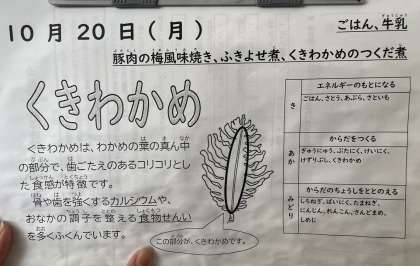 10月20日(月)
ごはん、牛乳
豚肉の梅風味焼き、ふきよせ煮、くきわかめのつくだ煮
くきわかめ
くきわかめは、わかめの葉の真ん中
の部分で、歯ごたえのあるコリコリとし
た食感が特徴です。
骨や歯を強くするカルシウムや、
おなかの調子を整える食物せんい
を多くふくんでいます。
この部分が、くきわかめです。
エネルギーのもとになる
き
ごはん、さとう、あぶら、さといも
からだをつくる
あか
ぎゅうにゅう、ぶたにく、けいにく、
けずりぶし、くきわかめ
からだのちょうしをととのえる
みどり
しらねぎ、はいにく、たまねぎ、
にんじん、れんこん、さんどまめ、
しめじ